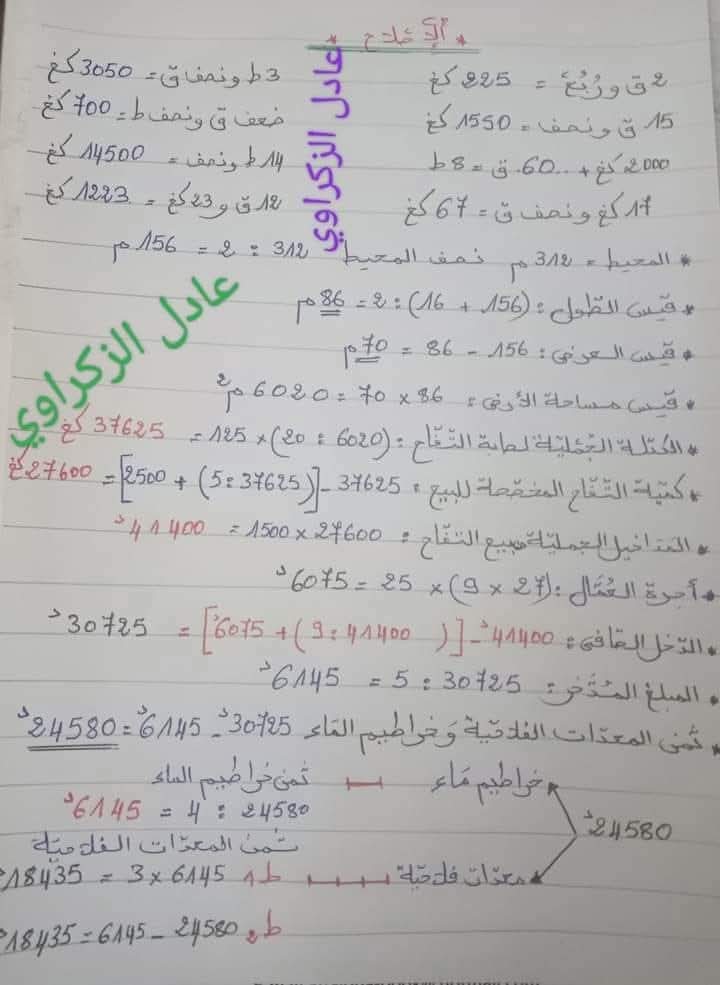 * الإصلاح *
2 ق و رُبُع = 225 كغ
3 ط و نصف ق = 3050 كغ
15 ق و نصف = 1550 كغ
ضعف ق و نصف ط = 700 كغ
2000 كغ + 60 ق = 8 ط
14 ط و نصف = 14500 كغ
17 كغ و نصف ق = 67 كغ
12 ق و 23 كغ = 1223 كغ
عادل الزكراوي
* المحيط = 312 م نصف المحيط 312 : 2 = 156 م
* قيس الطّول : (156 + 16) : 2 = 86 م
* قيس العرض : 156 - 86 = 70 م
* قيس مساحة الأرض : 86 × 70 = 6020 م²
عادل الزكراوي
* الكتلة الجُمليّة لصابة التّفّاح : (6020 : 20) × 125 = 37625 كغ
* كميّة التّفّاح المخصّصة للبيع : 37625 - [(37625 : 5) + 2500] = 27600 كغ
* المداخيل الجمليّة لمبيع التفّاح : 27600 × 1500 = 41400 د
* أجرة العُمّال : (27 × 9) × 25 = 6075 د
* الدّخل الصّافي : 41400 د - [(41400 : 9) + 6075 د] = 30725 د
* المبلغ المُدّخر : 30725 : 5 = 6145 د
* ثمن المعدّات الفلاحيّة و خراطيم الماء 30725 د - 6145 د = 24580 د
خراطيم ماء ثمن خراطيم الماء
24580 : 4 = 6145 د
24580 د
ثمن المعدّات الفلاحيّة
معدّات فلاحيّة ط1 6145 × 3 = 18435 د
ط2 24580 - 6145 = 18435 د